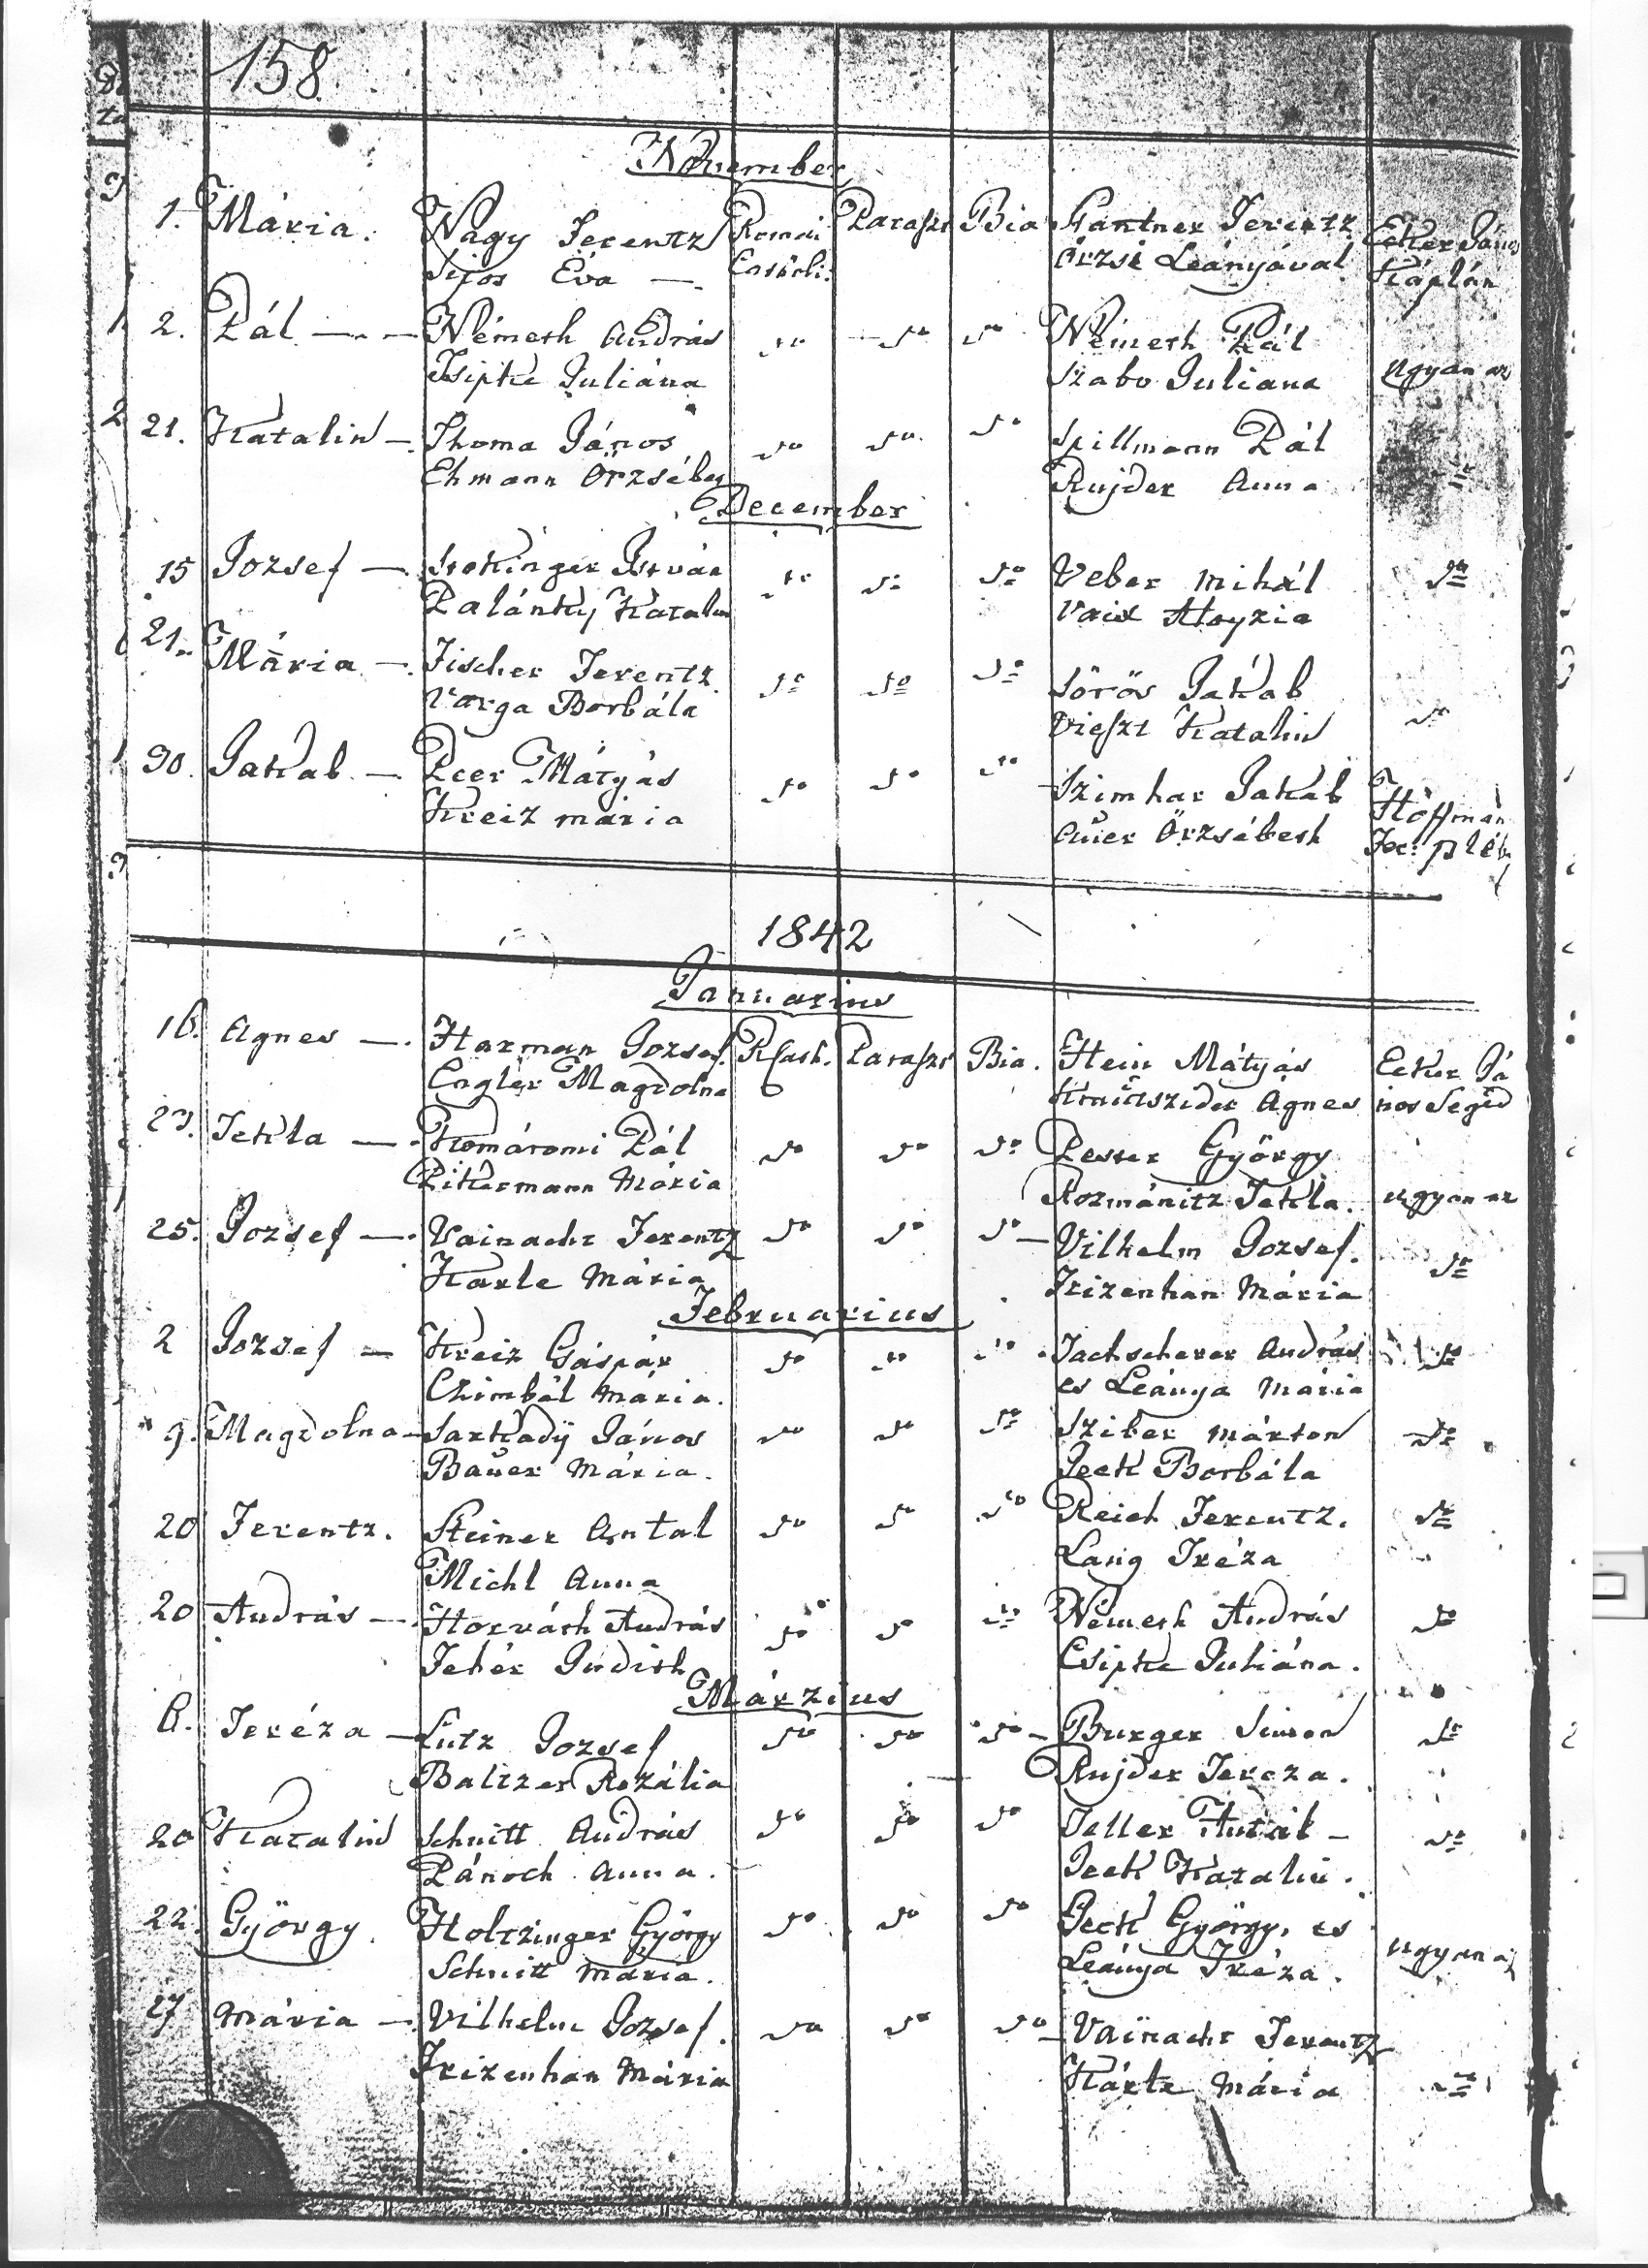 158.
November
1. Mária. Nagy Ferentz Romai Paraszt Bia Gantner Ferentz Ecker János
Sipos Éva —. Catholi. Örzse Leányával Káplán
2. Pál — — Németh András do do do Németh Pál
Tsipke Juliána Szabo Juliana ugyan az
21. Katalin — Thoma János do do do Spillmann Pál do
Ehmann Örzsébet Rujder Anna
December
15 Jozsef — Stokinger István do do do Veber Mihál do
Palánky Katalin Vaix Aloyzia
21. Mária — Fischer Ferentz do do do Sörös Jakab
Varga Borbála Vieszt Katalin do
30. Jakab — Peer Mátyás do do do Szimhar Jakab Hoffmán
Kreiz Mária Auer Örzsébeth Fer: pléb
1842
Januarius
16. Agnes —. Harman Jozsef. R Cath. Paraszt Bia. Hein Mátyás Ecker Já
Engler Magdolna Agnes nos Segéd
23. Tekla — Komáromi Pál do do do Pesser György
Pikermann Mária Rozmánitz Tekla. ugyan az
25. Jozsef —. Vainacht Ferentz do do do — Vilhelm Jozsef. do
Karle Mária Frizenhan Mária
Februarius
2 Jozsef — Kreiz Gáspár do do do Tachscherer András do
Czimbál Mária. es Leánya Mária
9. Magdolna — Sarkadÿ János do do do Sziber Márton do
Bauer Mária. Jeck Borbála
20 Ferentz. Steiner Antal do do do Reich Ferentz. do
Michl Anna Lang Tréza
20 András — Horváth András do do do Németh András do
Fehér Judith Csipke Juliána.
Márzius
6. Teréza — Lutz Jozsef do do do — Burger Simon do
Baltzer Rozália Rujder Tereza.
20 Katalin Schnitt András do do do Teller Antal — do
Pánoch Anna. Jeck Katalin.
22. György. Holtzinger György do do do Jeck György, es
Schnitt Mária. Leánya Tréza. ugyan az
27 Mária — Vilhelm Jozsef. do do do — Vainacht Ferentz
Frizenhan Mária Kárle Mária do